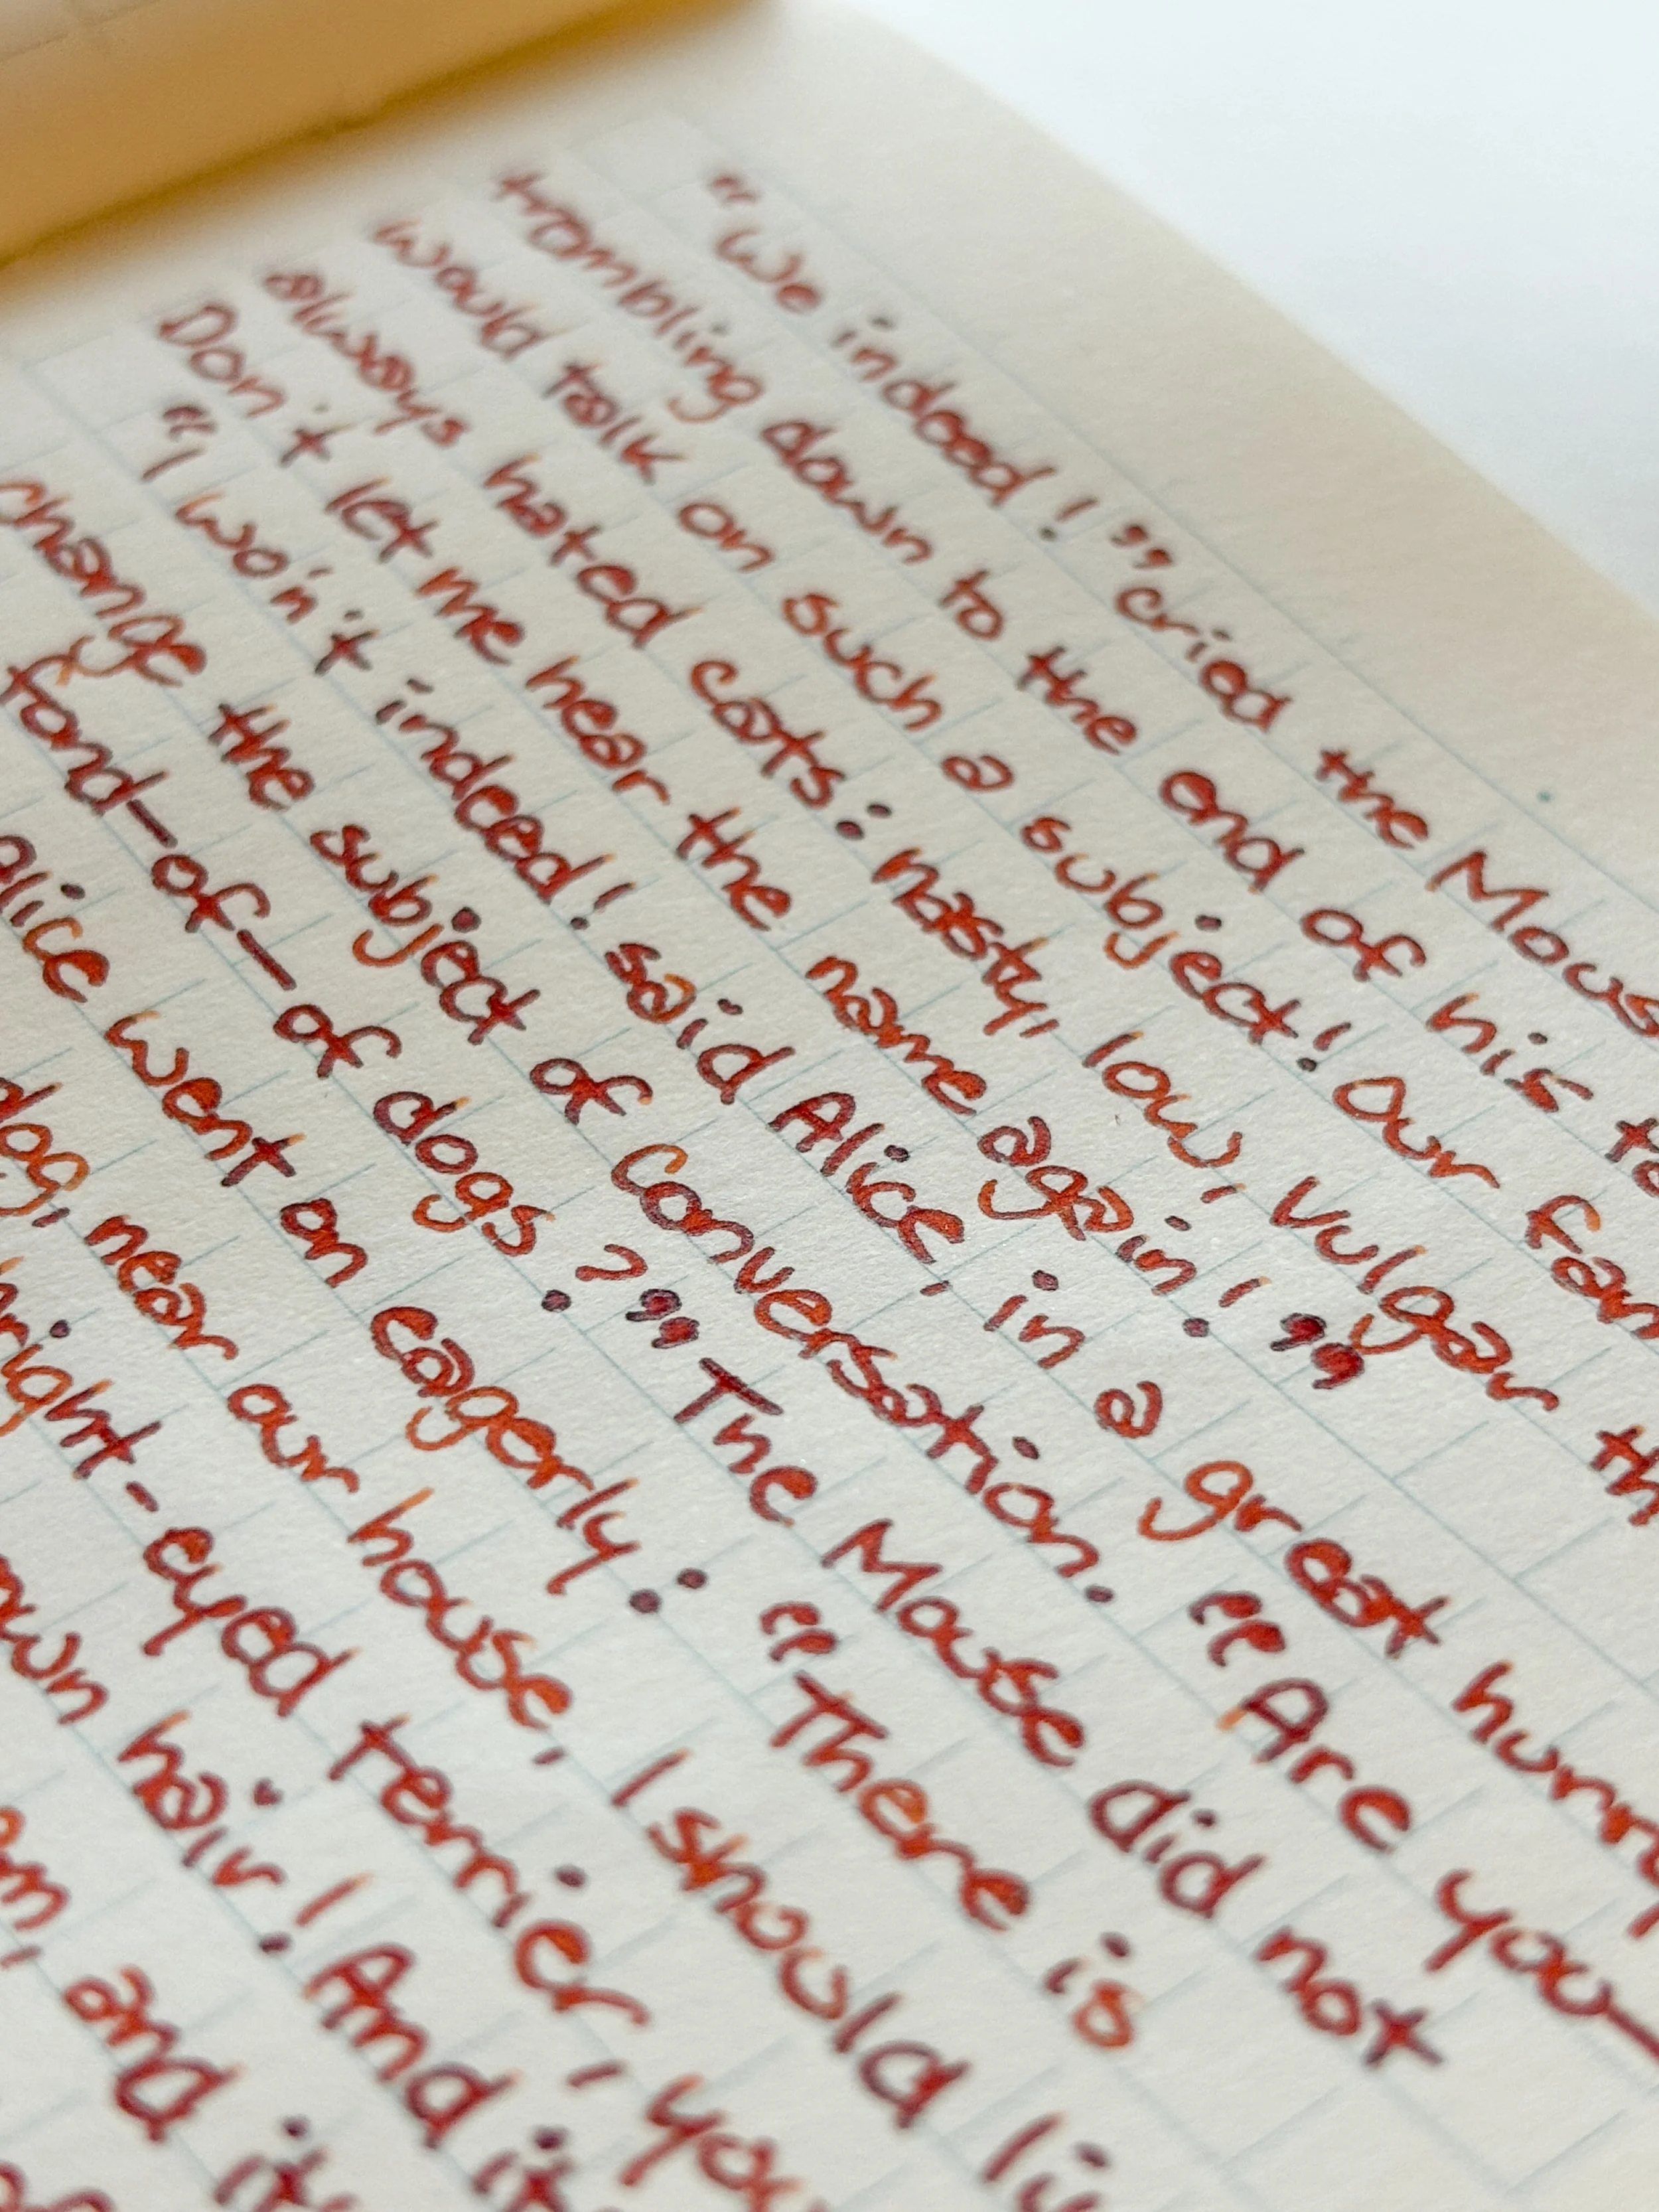 "We indeed!" cried the Mous
trembling down to the end of his ta
would talk on such a subject! Our fam
always hated cats: nasty, low, vulgar th
Don't let me hear the name again!"
"I won't indeed! said Alice, in a great hurry
change the subject of conversation. "Are you—
fond—of—of dogs?" The Mouse did not
alice went on eagerly: "There is
dog, near our house, I should li
right-eyed terrier, you
own hair! And it
em, and it